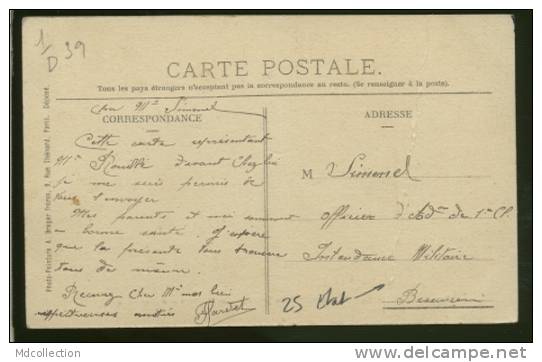 1/D 39
CARTE POSTALE.
Tous les pays étrangers n'acceptent pas la correspondance au recto. (Se renseigner à la poste).
Cher Mr Simonel
CORRESPONDANCE
Cette carte représentant
Mr devant chez lui
je me suis permis de
vous l'envoyer
Mes parents et moi sommes
en bonne santé. J'espère
que la présente vous trouvera
tous de même.
Recevez Cher Mr mes
respectueuses amitiés
ADRESSE
M Simonel
Officier d'Adon de 1re Cl.
Intendance Militaire
Besançon
25
Photo-Peinture A. Breger Frères, 9, Rue Thénard, Paris. Déposé.
MDcollection
http://www.delcampe.net